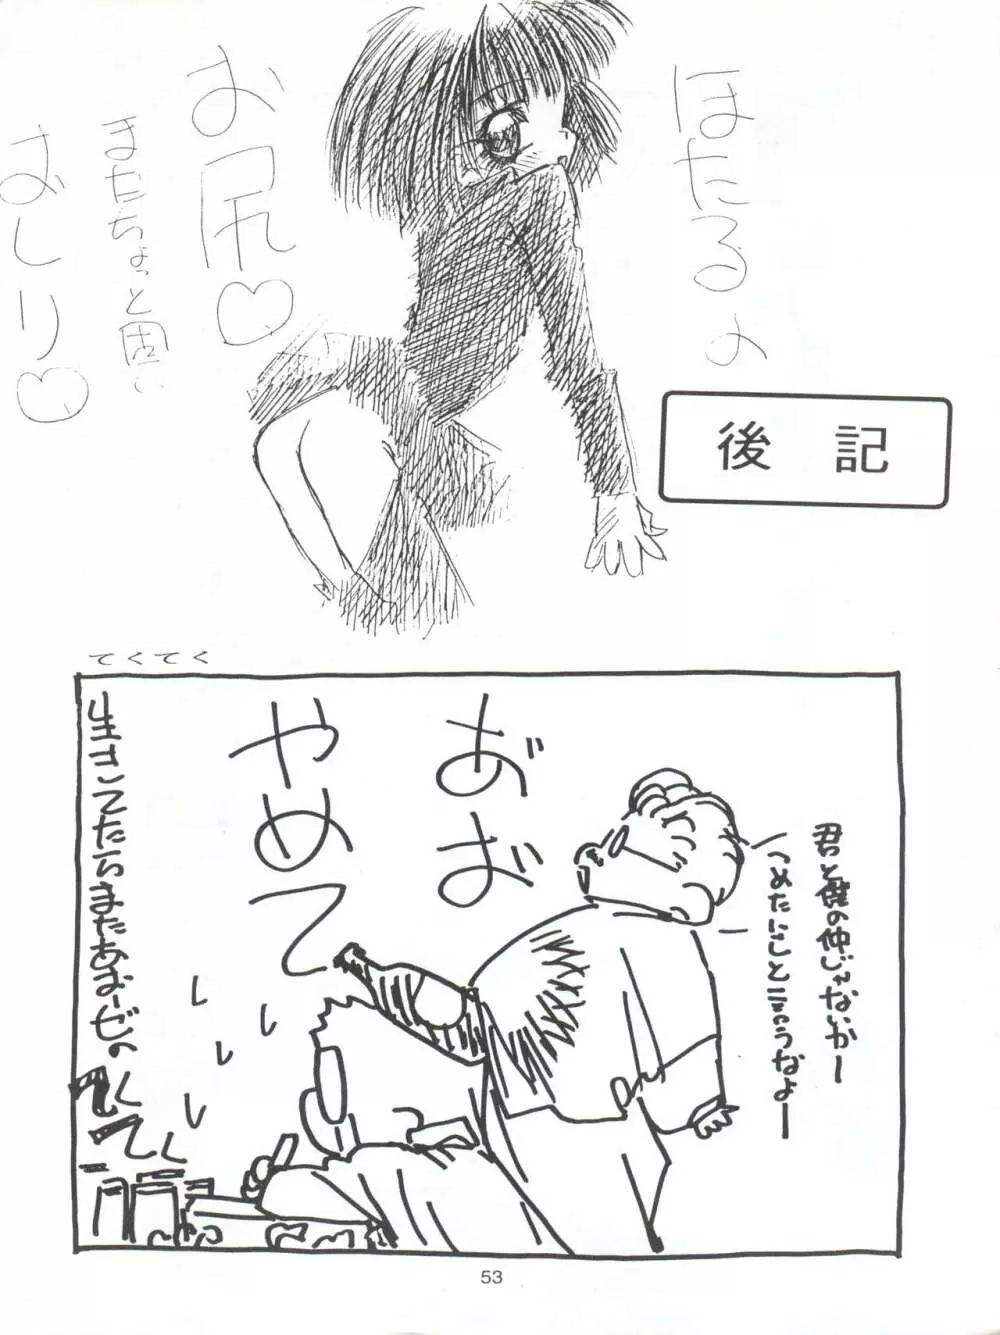 ほたるの
お尻♡
まだちょっと固い
おしり♡
後記
てくてく
君と僕の仲じゃないかー
つめたいこと言うなよー
おお
やめて
生きてたらまたあおーぜの
53